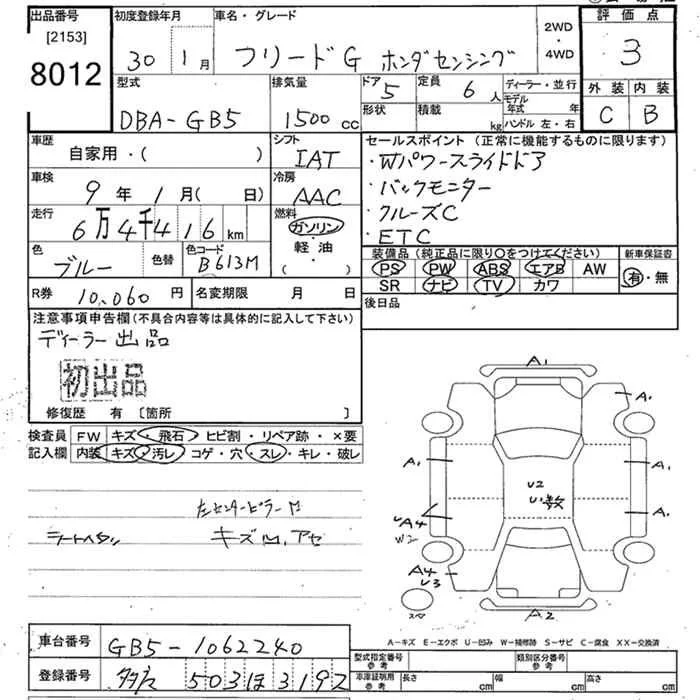 出品番号
[2153]
8012
初度登録年月
30 1月
車名・グレード
フリードG ホンダセンシング
2WD
・
4WD
評価点
3
外装 内装
C B
型式
DBA-GB5
排気量
1500cc
ドア
5
形状
定員
6人
積載
kg
ディーラー・並行
モデル年式 年
ハンドル 左・右
車歴
自家用・( )
シフト
IAT
車検
9年1月( 日)
冷房
AAC
走行
6万4千416km
燃料
ガソリン
軽油
( )
色
ブルー
色替
色コード
B613M
セールスポイント(正常に機能するものに限ります)
・Wパワースライドドア
・バックモニター
・クルーズC
・ETC
装備品(純正品に限り○をつけてください)
PS PW ABS エアB AW
SR ナビ TV カワ
新車保証書
有・無
R券 10,060円
名変期限 月 日
後日品
注意事項申告欄(不具合内容等は具体的に記入して下さい)
ディーラー出品
初出品
修復歴 有 [箇所 ]
検査員
記入欄
FW キズ・飛石・ヒビ割・リペア跡・×要
内装 キズ・汚レ・コゲ・穴・スレ・キレ・破レ
左センターピラー
キズ
A1
A1
A1
A1
A1
U2
U1数
A4
W2
A4
U3
A2
A-キズ E-エクボ U-凹み W-補修跡 S-サビ C-腐食 XX-交換済
車台番号
GB5-1062240
登録番号
503ほ3192
型式指定番号
参考
類別区分番号
参考
車庫証明用
参考
長さ cm
幅 cm
高さ cm